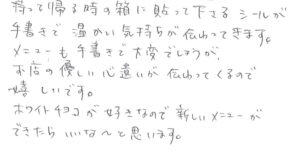 持って帰る時の箱に貼って下さる シールが
手書きで 温かい気持ちが 伝わってきます。
メニューも 手書きで 大変でしょうが、
お店の 優しい心遣いが 伝わってくるので
嬉しいです。
ホワイトチョコが 好きなので 新しいメニューが
できたら いいな〜と 思います。